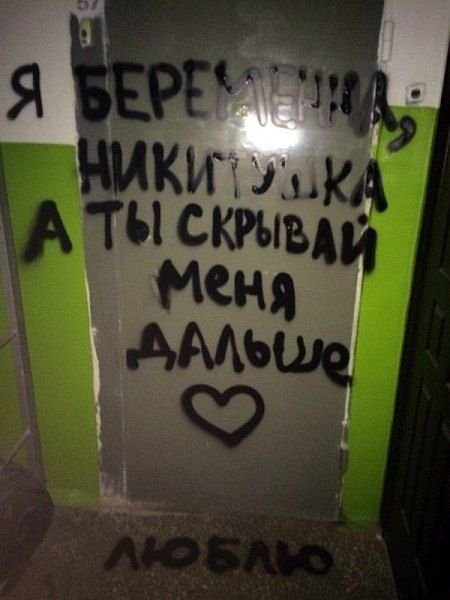 57
Я БЕРЕМЕННА,
НИКИТУШКА
А ТЫ СКРЫВАЙ
МеНЯ
ДАЛЬШе
ЛЮБЛЮ